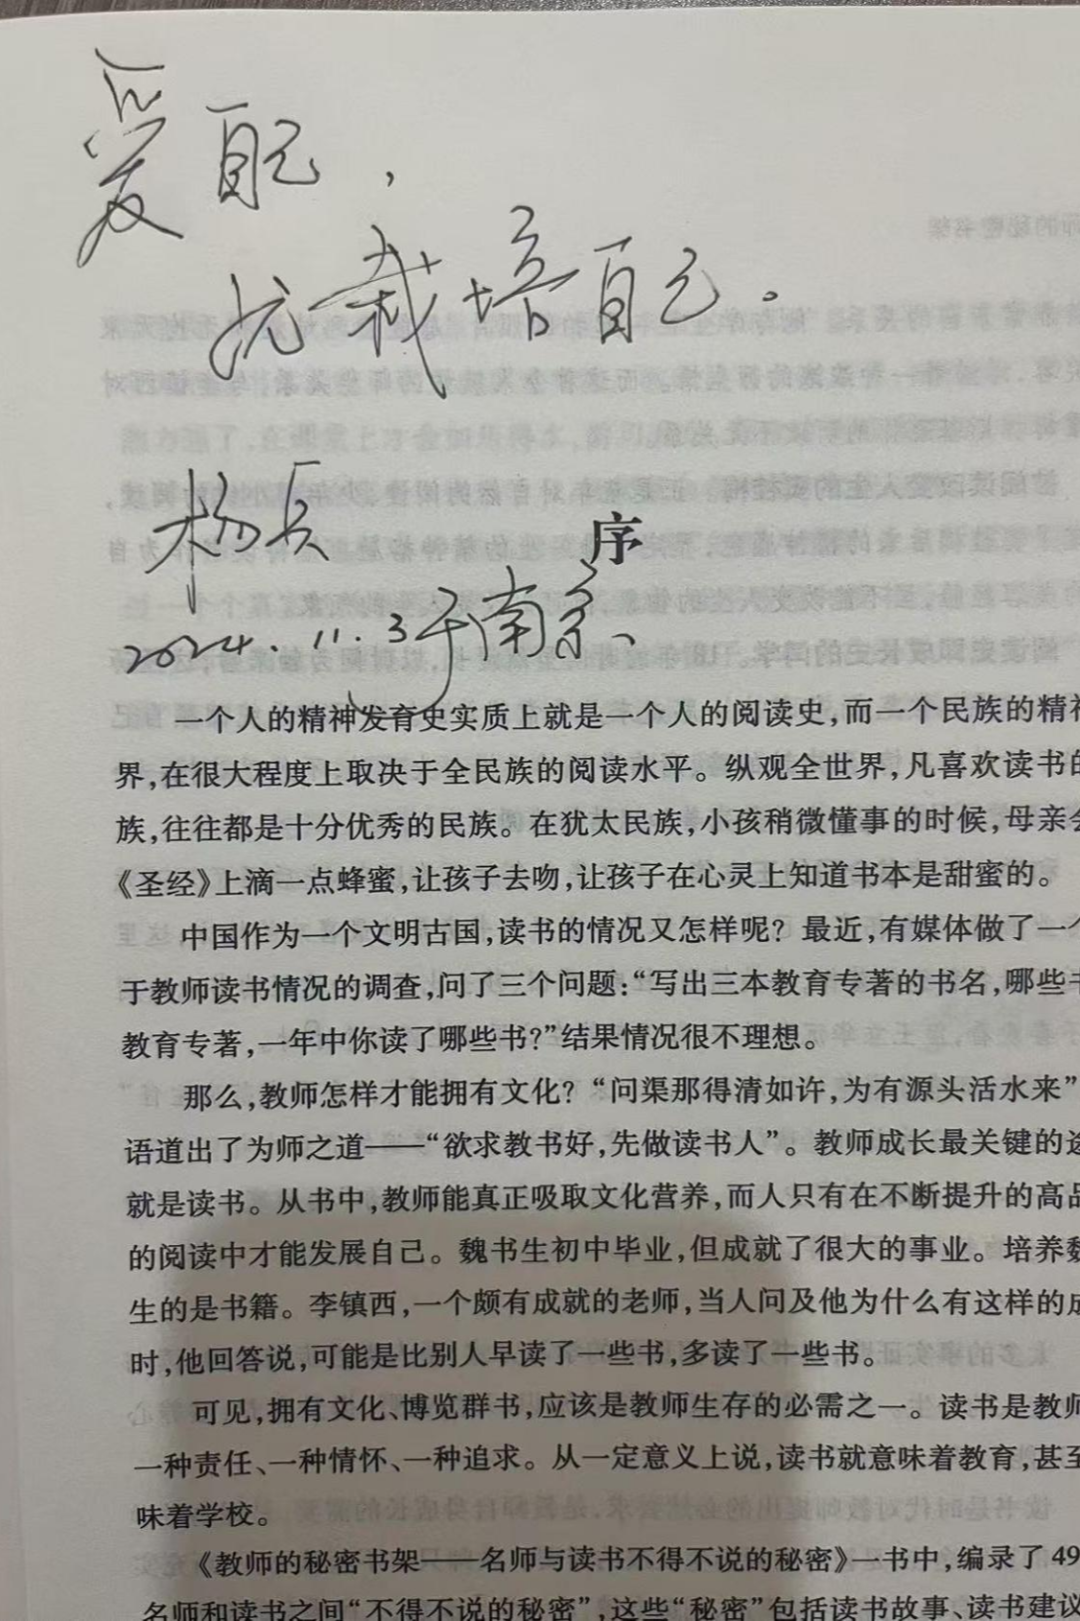 爱自己，
就栽培自己。
杨兵
序
2024.11.3于南京
一个人的精神发育史实质上就是一个人的阅读史，而一个民族的精神
界，在很大程度上取决于全民族的阅读水平。纵观全世界，凡喜欢读书的
族，往往都是十分优秀的民族。在犹太民族，小孩稍微懂事的时候，母亲会
《圣经》上滴一点蜂蜜，让孩子去吻，让孩子在心灵上知道书本是甜蜜的。
中国作为一个文明古国，读书的情况又怎样呢？最近，有媒体做了一个
于教师读书情况的调查，问了三个问题：“写出三本教育专著的书名，哪些书
教育专著，一年中你读了哪些书？”结果情况很不理想。
那么，教师怎样才能拥有文化？“问渠那得清如许，为有源头活水来”
语道出了为师之道——“欲求教书好，先做读书人”。教师成长最关键的途
就是读书。从书中，教师能真正吸取文化营养，而人只有在不断提升的高品
的阅读中才能发展自己。魏书生初中毕业，但成就了很大的事业。培养魏
生的是书籍。李镇西，一个颇有成就的老师，当人问及他为什么有这样的成
时，他回答说，可能是比别人早读了一些书，多读了一些书。
可见，拥有文化、博览群书，应该是教师生存的必需之一。读书是教师
一种责任、一种情怀、一种追求。从一定意义上说，读书就意味着教育，甚至
味着学校。
《教师的秘密书架——名师与读书不得不说的秘密》一书中，编录了49
名师和读书之间“不得不说的秘密”，这些“秘密”包括读书故事、读书建议